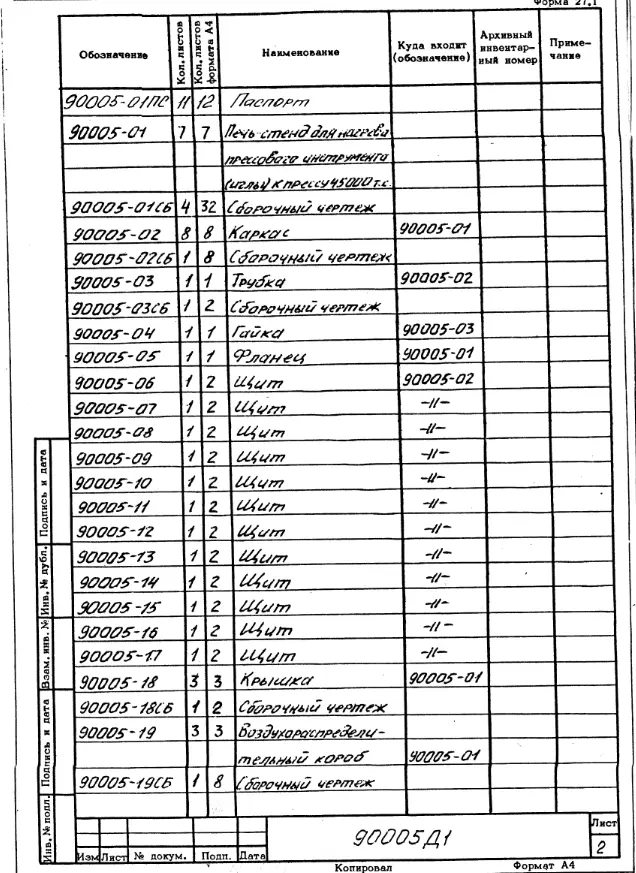 Форма 27.1
Обозначение Кол. листов Кол. листов формата А4 Наименование Куда входит (обозначение) Архивный инвентарный номер Примечание
90005-01ПС 11 12 Паспорт
90005-01 7 7 Печь-стенд для нагрева
прессового инструмента
(иглы) к прессу 45000 т.с.
90005-01СБ 4 32 Сборочный чертеж
90005-02 8 8 Каркас 90005-01
90005-02СБ 1 8 Сборочный чертеж
90005-03 1 1 Трубка 90005-02
90005-03СБ 1 2 Сборочный чертеж
90005-04 1 1 Гайка 90005-03
90005-05 1 1 Фланец 90005-01
90005-06 1 2 Щит 90005-02
90005-07 1 2 Щит -//-
90005-08 1 2 Щит -//-
90005-09 1 2 Щит -//-
90005-10 1 2 Щит -//-
90005-11 1 2 Щит -//-
90005-12 1 2 Щит -//-
90005-13 1 2 Щит -//-
90005-14 1 2 Щит -//-
90005-15 1 2 Щит -//-
90005-16 1 2 Щит -//-
90005-17 1 2 Щит -//-
90005-18 3 3 Крышка 90005-01
90005-18СБ 1 2 Сборочный чертеж
90005-19 3 3 Воздухораспредели-
тельный короб 90005-01
90005-19СБ 1 8 Сборочный чертеж
Подпись и дата
Инв. № дубл.
Взам. инв. №
Подпись и дата
Инв. № подл.
Изм Лист № докум. Подп. Дата
90005Д1
Лист
2
Копировал Формат А4